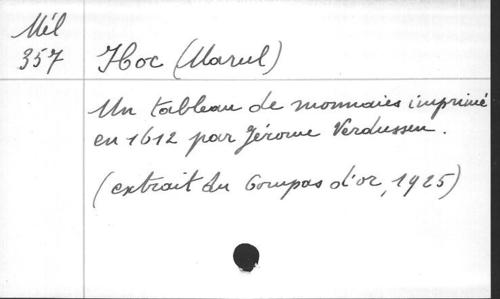 Mél
357
Hoc (Marcel)
Un tableau de monnaies imprimé
en 1612 par Jérome Verdussen.
(extrait du Compas d'or, 1925)